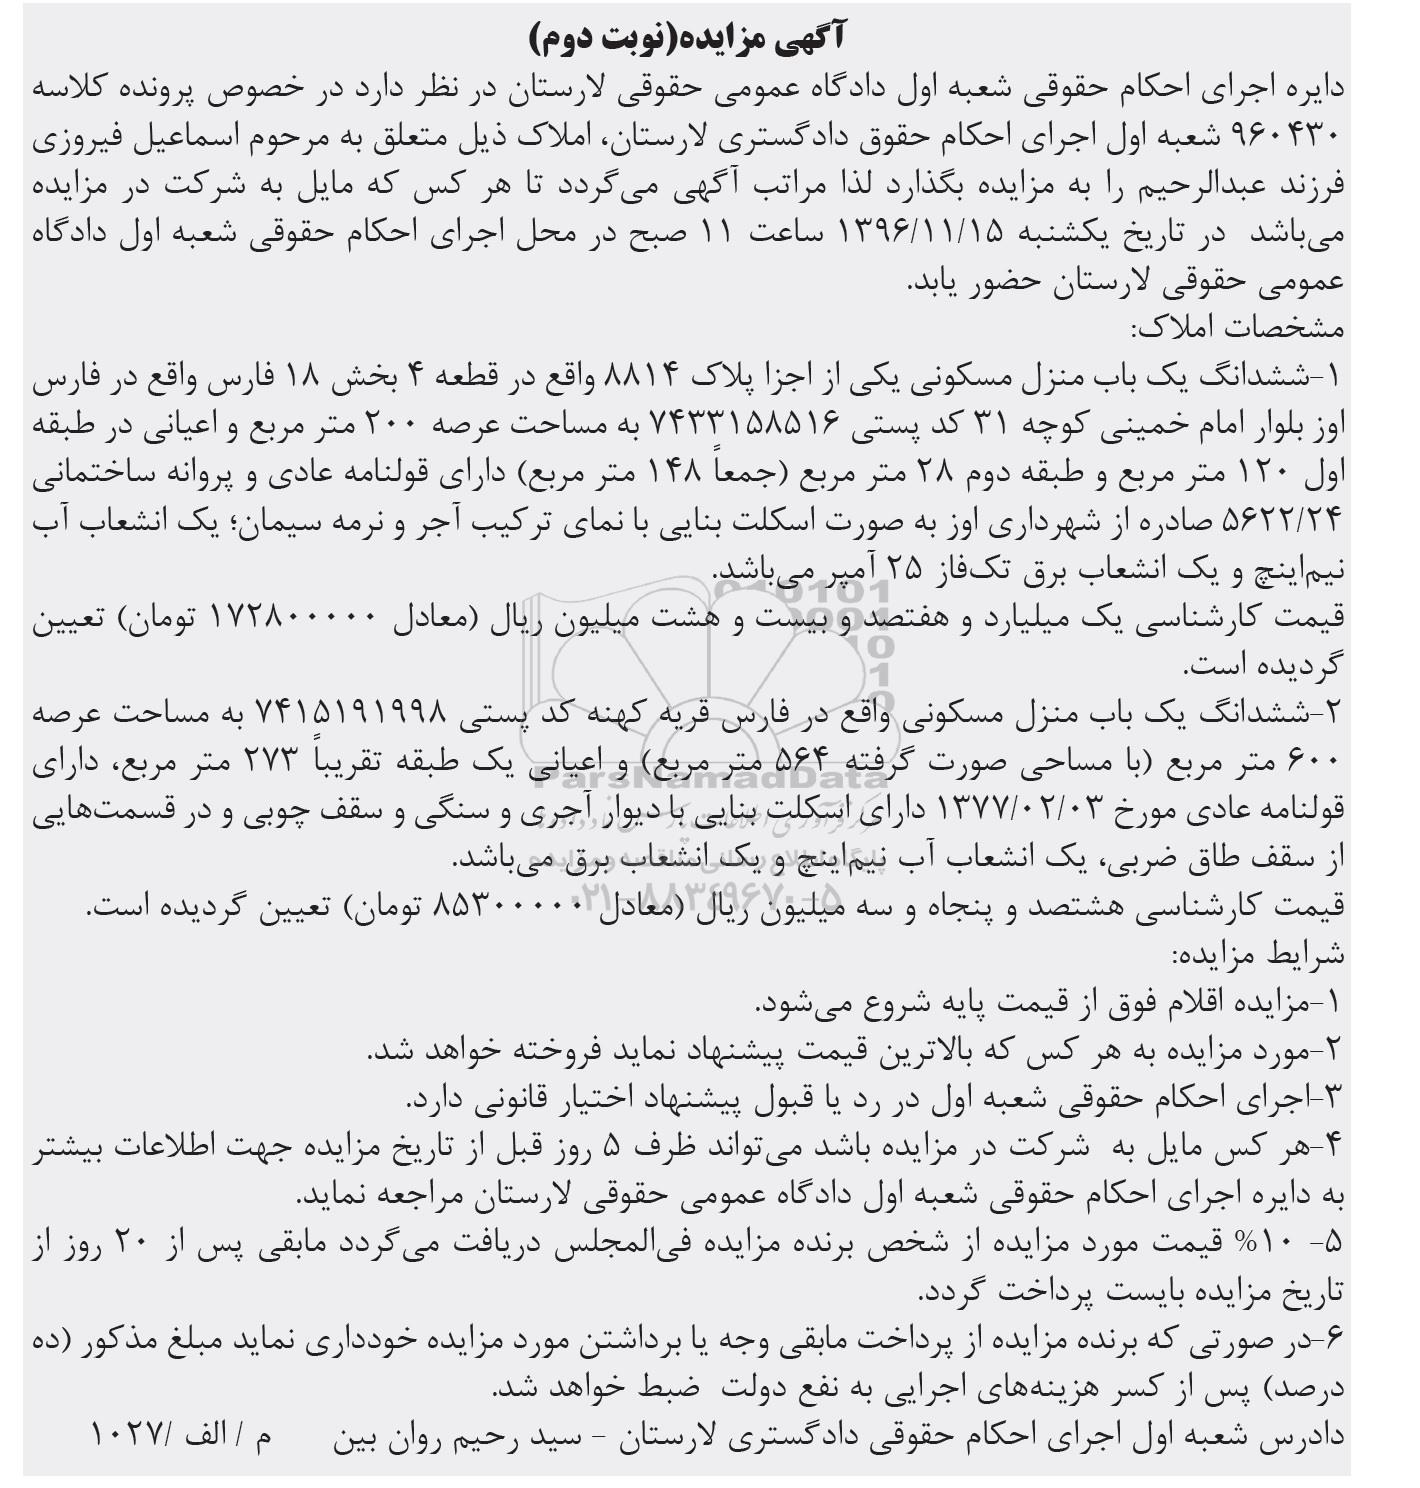 آگهی مزایده(نوبت دوم)
دایره اجرای احکام حقوقی شعبه اول دادگاه عمومی حقوقی لارستان در نظر دارد در خصوص پرونده کلاسه
۹۶۰۴۳۰ شعبه اول اجرای احکام حقوق دادگستری لارستان، املاک ذیل متعلق به مرحوم اسماعیل فیروزی
فرزند عبدالرحیم را به مزایده بگذارد لذا مراتب آگهی می‌گردد تا هر کس که مایل به شرکت در مزایده
می‌باشد در تاریخ یکشنبه ۱۳۹۶/۱۱/۱۵ ساعت ۱۱ صبح در محل اجرای احکام حقوقی شعبه اول دادگاه
عمومی حقوقی لارستان حضور یابد.
مشخصات املاک:
۱-ششدانگ یک باب منزل مسکونی یکی از اجزا پلاک ۸۸۱۴ واقع در قطعه ۴ بخش ۱۸ فارس واقع در فارس
اوز بلوار امام خمینی کوچه ۳۱ کد پستی ۷۴۳۳۱۵۸۵۱۶ به مساحت عرصه ۲۰۰ متر مربع و اعیانی در طبقه
اول ۱۲۰ متر مربع و طبقه دوم ۲۸ متر مربع (جمعاً ۱۴۸ متر مربع) دارای قولنامه عادی و پروانه ساختمانی
۵۶۲۲/۲۴ صادره از شهرداری اوز به صورت اسکلت بنایی با نمای ترکیب آجر و نرمه سیمان؛ یک انشعاب آب
نیم‌اینچ و یک انشعاب برق تک‌فاز ۲۵ آمپر می‌باشد.
قیمت کارشناسی یک میلیارد و هفتصد و بیست و هشت میلیون ریال (معادل ۱۷۲۸۰۰۰۰۰ تومان) تعیین
گردیده است.
۲-ششدانگ یک باب منزل مسکونی واقع در فارس قریه کهنه کد پستی ۷۴۱۵۱۹۱۹۹۸ به مساحت عرصه
۶۰۰ متر مربع (با مساحی صورت گرفته ۵۶۴ متر مربع) و اعیانی یک طبقه تقریباً ۲۷۳ متر مربع، دارای
ParsNamadData
قولنامه عادی مورخ ۱۳۷۷/۰۲/۰۳ دارای اسکلت بنایی با دیوار آجری و سنگی و سقف چوبی و در قسمت‌هایی
از سقف طاق ضربی، یک انشعاب آب نیم‌اینچ و یک انشعاب برق می‌باشد.
پایگاه اطلاع رسانی مناقصه و مزایده
۰۲۱-۸۸۳۴۹۶۷۰-۵
قیمت کارشناسی هشتصد و پنجاه و سه میلیون ریال (معادل ۸۵۳۰۰۰۰۰ تومان) تعیین گردیده است.
شرایط مزایده:
۱-مزایده اقلام فوق از قیمت پایه شروع می‌شود.
۲-مورد مزایده به هر کس که بالاترین قیمت پیشنهاد نماید فروخته خواهد شد.
۳-اجرای احکام حقوقی شعبه اول در رد یا قبول پیشنهاد اختیار قانونی دارد.
۴-هر کس مایل به شرکت در مزایده باشد می‌تواند ظرف ۵ روز قبل از تاریخ مزایده جهت اطلاعات بیشتر
به دایره اجرای احکام حقوقی شعبه اول دادگاه عمومی حقوقی لارستان مراجعه نماید.
۵- ۱۰% قیمت مورد مزایده از شخص برنده مزایده فی‌المجلس دریافت می‌گردد مابقی پس از ۲۰ روز از
تاریخ مزایده بایست پرداخت گردد.
۶-در صورتی که برنده مزایده از پرداخت مابقی وجه یا برداشتن مورد مزایده خودداری نماید مبلغ مذکور (ده
درصد) پس از کسر هزینه‌های اجرایی به نفع دولت ضبط خواهد شد.
دادرس شعبه اول اجرای احکام حقوقی دادگستری لارستان - سید رحیم روان بین م / الف /۱۰۲۷